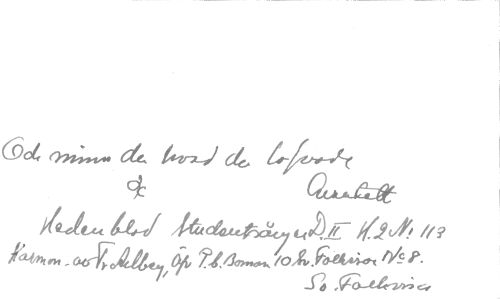 Och minns du hvad du lofvade
&c
Hedenblad Studentsånger D. II H. 2 No 113
Harmon. av Fr. Åhlbey, Op P. C. Boman 10 Sv. Folkvisor No 8.
Sv. Folkvisa